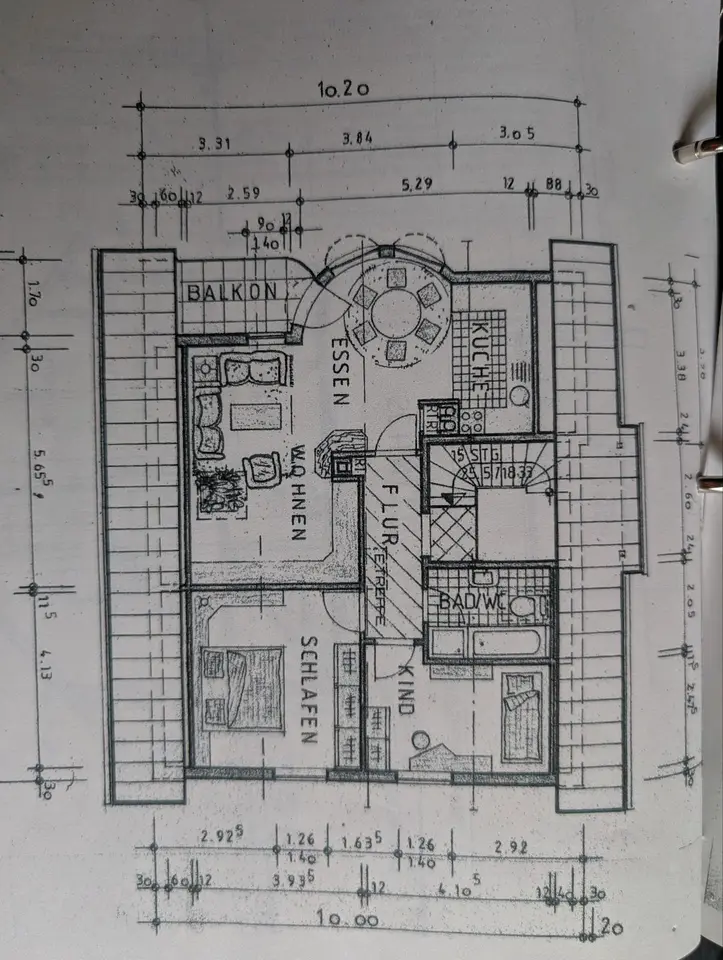 10.20
3.31 3.84 3.05
30 60 12 2.59 5,29 12 88 30
90 12
1.40
BALKON
ESSEN
KÜCHE
WOHNEN
15 STG
25.5/18.33
FLUR
BAD/WC
SCHLAFEN
KIND
1.70
30
5.65⁵
11⁵
4.13
30
3.38
24
2.60
24
2.05
11⁵
2.47⁵
30
2.92⁵ 1.26 1.63⁵ 1.26 2.92
1.40 1.40
30 60 12 3.93⁵ 12 4.10⁵ 12 40 30
10.00 20